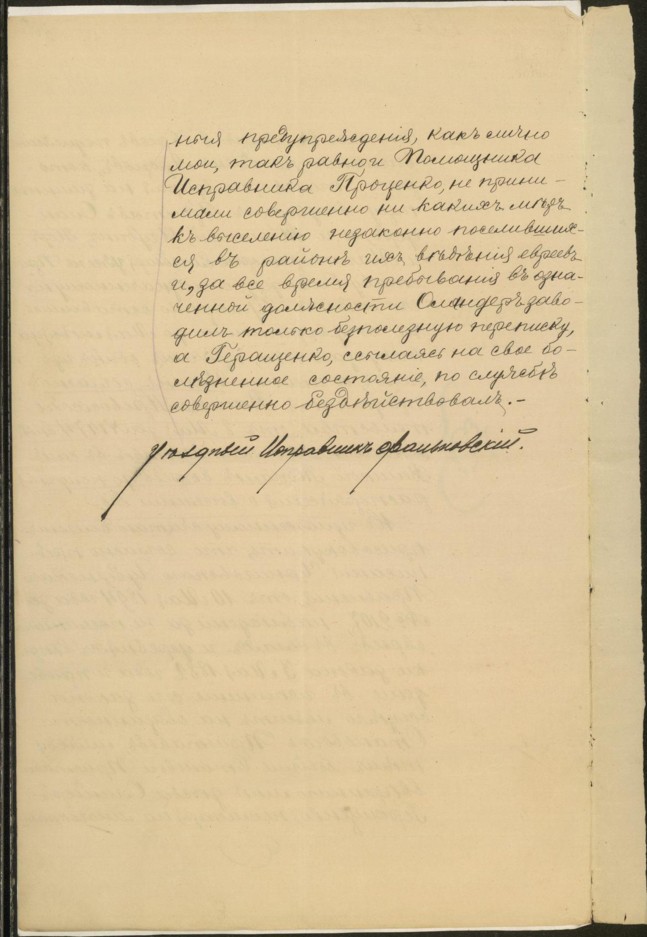 ныя предупрежденія, какъ лично
мои, такъ равно и Помощника
Исправника Проценко, не прини-
мали совершенно ни какихъ мѣръ
къ выселенію незаконно поселивших-
ся въ районѣ ихъ вѣдѣнія евреевъ
и, за все время пребыванія въ озна-
ченной должности Олиндеръ заво-
дилъ только безполезную переписку,
а Геращенко, ссылаясь на свое бо-
лѣзненное состояніе, по службѣ
совершенно бездѣйствовалъ.-
Уѣздный Исправникъ